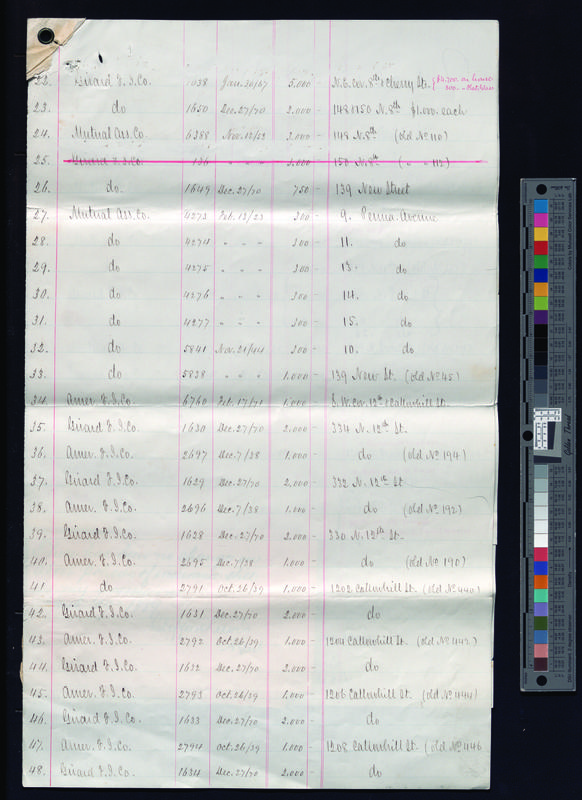 22. Girard F. I. Co. 1038 Jan. 30/67 5.000 - N.E. cor. 8th & Cherry Sts. {$4.700. on house
300. "
23. do 1650 Dec. 27/70 2.000 - 148 & 150 N. 8th $1.000. each
24. Mutual Ass. Co. 6388 Nov. 12/52 2.000 - 148 N. 8th (old No 110)
25. Girard F. I. Co. 136 " " " 3.000 - 150 N. 8th ( " " 112)
26. do. 1649 Dec. 27/70 750 - 139 New Street
27. Mutual Ass. Co. 4273 Feb. 13/23 300 - 9. Penna. Avenue
28. do 4274 " " " 300 - 11. do
29. do 4275 " " " 300 - 13. do
30. do 4276 " " " 300 - 14. do
31. do 4277 " " " 300 - 15. do
32. do 5841 Nov. 21/44 300 - 10. do
33. do 5838 " " " 1.000 - 139 New St. (old No 45)
34. Amer. F. I. Co. 6760 Feb. 17/71 - S.W. cor. 12th & Callowhill St.
35. Girard F. I. Co. 1630 Dec. 27/70 2.000 - 334 N. 12th St.
36. Amer. F. I. Co. 2697 Dec. 7/38 1.000 - do (old No 194)
37. Girard F. I. Co. 1629 Dec. 27/70 2.000 - 332 N. 12th St
38. Amer. F. I. Co. 2696 Dec. 7/38 1.000 - do (old No 192)
39. Girard F. I. Co. 1628 Dec. 27/70 2.000 - 330 N. 12th St.
40. Amer. F. I. Co. 2695 Dec. 7/38 1.000 - do (old No 190)
41. do 2791 Oct. 26/39 1.000 - 1202 Callowhill St. (old No 440)
42. Girard F. I. Co. 1631 Dec. 27/70 2.000 - do
43. Amer. F. I. Co. 2792 Oct. 26/39 1.000 - 1204 Callowhill St. (old No 442)
44. Girard F. I. Co. 1632 Dec. 27/70 2.000 - do
45. Amer. F. I. Co. 2793 Oct. 26/39 1.000 - 1206 Callowhill St. (old No 444)
46. Girard F. I. Co. 1633 Dec. 27/70 2.000 - do
47. Amer. F. I. Co. 2794 Oct. 26/39 1.000 - 1208 Callowhill St. (old No 446
48. Girard F. I. Co. 1634 Dec. 27/70 2.000 - do